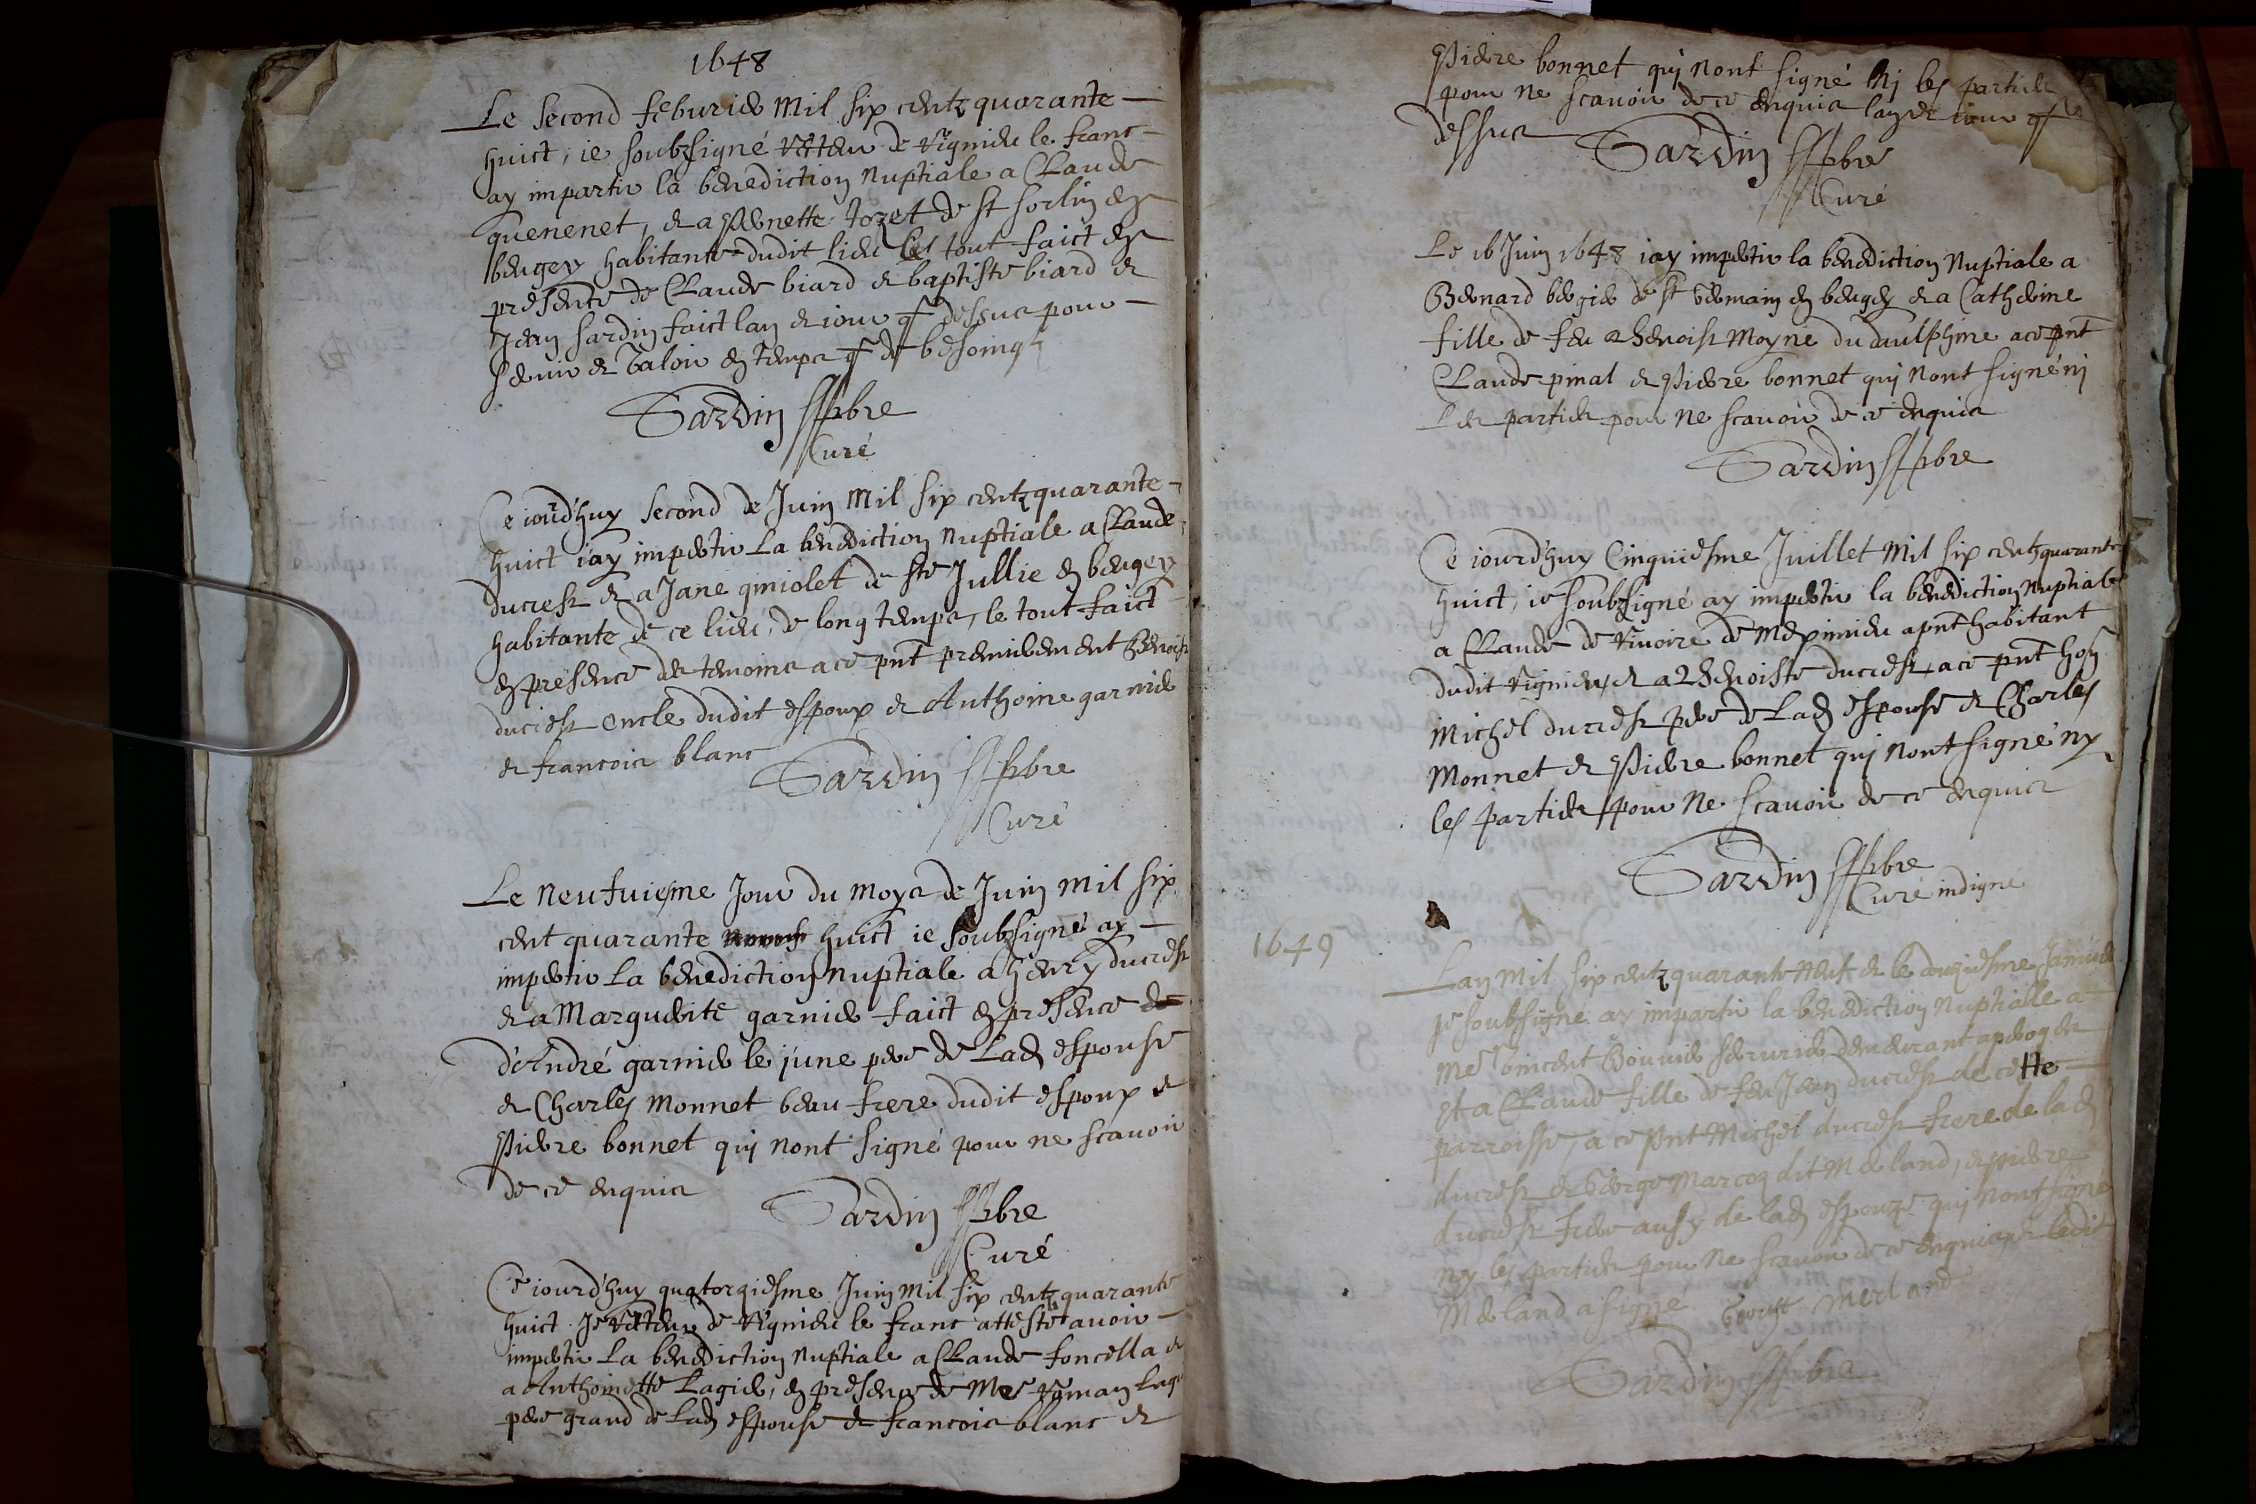 1648
Le second feburier mil six centz quarante
huict, ie soubzsigné recteur de Vignieu le franc
ay impartir la benediction nuptiale a Claude
quenenet, et a Pernette Jozet de st sorlin en
beugey habitante dudit lieu le tout faict en
presence de Claude biard et baptiste biard et
Jean sardin faict lan et iour q dessus pour
servir et valoir en temps q de besoing
Sardin Pbre
Curé
Ce iourd'huy second de Juin mil six centz quarante
huict iay impertir La benediction nuptiale a Claude
ducrest et a Jane qmiolet de ste Jullie en beugey
habitante de ce lieu, de long temps, le tout faict
en presence des temoins a ce pnt premierement Benoist
ducrest oncle dudit espoux et Anthoine garnier
et francois blanc
Sardin Pbre
Curé
Le neufuiesme Jour du moys de Juin mil six
cent quarante huict ie soubzsigné ay
impertir La benediction nuptiale a henry ducrest
et a Marguerite garnier faict en presence de
d'André garnier le june pere de Lad espouse
et Charles monnet beau frere dudit espoux et
Pierre bonnet qui nont signé pour ne scauoir
de ce enquis
Sardin Pbre
Curé
Ce iourd'huy quatorziesme Juin mil six centz quarante
huict Je recteur de Vignieu le franc atteste auoir
impertir La benediction nuptiale a Claude foncella et
a Anthoinette Lagier, en presence de Me romain
pere grand de Lad espouse et francois blanc et
Pierre bonnet qui nont signé ni les parties
pour ne scauoir de ce enquis lan et iour q
dessus
Sardin Pbre
Curé
Le 16 Juin 1648 iay impertir la benediction nuptiale a
Bernard bergier de st Germain en beugey et a Catherine
fille de feu Benoist Moyne du daulphine a ce pnt
Claude pinat et Pierre bonnet qui nont signé ni
Les parties pour ne scauoir de ce enquis
Sardin Pbre
Ce iourd'huy Cinquiesme Juillet mil six centz quarante
huict, ie soubzsigné ay impertir la benediction nuptiale
a Claude de riuoire de meximieu apnt habitant
dudit Vignieu, et a Benoiste ducrest, a ce pnt hon
Michel ducrest pere de Lad espouse et Charles
Monnet et Pierre bonnet qui nont signé ny
les parties pour ne scauoir de ce enquis
Sardin Pbre
Curé indigne
1649
Lan mil six centz quarante neuf et le onziesme Januier
je soubzsigné ay impartir la benediction nuptialle a
me Vincent Bouuier serrurier demeurant a peroges
et a Claude fille de feu Jean ducrest de cette
parroisse, a ce pnt Michel ducrest frere de lad
ducrest et George Marcoz dit Merland, et pierre
ducrest frere aussy de lad espouze qui nont signé
ny les parties pour ne scauoir de ce enquis et ledit
Merland a signé George Merland
Sardin Pbre